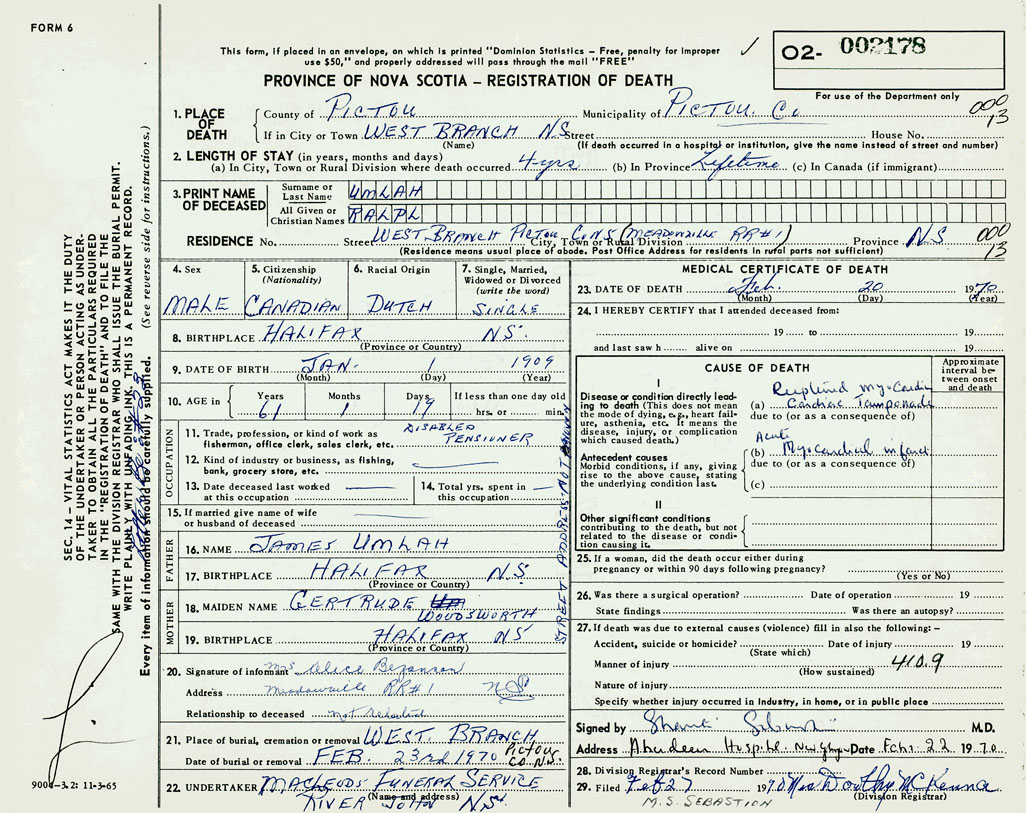 FORM 6
This form, if placed in an envelope, on which is printed "Dominion Statistics – Free, penalty for improper
use $50," and properly addressed will pass through the mail "FREE"
✓
O2- 002178
For use of the Department only
PROVINCE OF NOVA SCOTIA – REGISTRATION OF DEATH
000
13
1. PLACE OF DEATH
County of PICTOU Municipality of PICTOU Co
If in City or Town WEST BRANCH NS Street House No.
(Name) (If death occurred in a hospital or institution, give the name instead of street and number)
2. LENGTH OF STAY (in years, months and days)
(a) In City, Town or Rural Division where death occurred 4 yrs (b) In Province Lifetime (c) In Canada (if immigrant)
3. PRINT NAME OF DECEASED
Surname or Last Name UMLAH
All Given or Christian Names RALPL
RESIDENCE No. Street WEST BRANCH PICTOU CO NS (MEADOWVILLE RR#1) City, Town or Rural Division Province NS
000
13
(Residence means usual place of abode. Post Office Address for residents in rural parts not sufficient)
4. Sex
MALE
5. Citizenship
(Nationality)
CANADIAN
6. Racial Origin
DUTCH
7. Single, Married,
Widowed or Divorced
(write the word)
SINGLE
8. BIRTHPLACE HALIFAX NS.
(Province or Country)
9. DATE OF BIRTH JAN. 1 1909
(Month) (Day) (Year)
10. AGE in
Years Months Days If less than one day old
61 1 19 hrs. or min.
OCCUPATION
11. Trade, profession, or kind of work as
fisherman, office clerk, sales clerk, etc.
DISABLED
PENSIONER
12. Kind of industry or business, as fishing,
bank, grocery store, etc.
13. Date deceased last worked
at this occupation
14. Total yrs. spent in
this occupation
15. If married give name of wife
or husband of deceased
FATHER
16. NAME JAMES UMLAH
17. BIRTHPLACE HALIFAX NS
(Province or Country)
MOTHER
18. MAIDEN NAME GERTRUDE Um
WOODSWORTH
19. BIRTHPLACE HALIFAX NS
(Province or Country)
STREET ADDRESS NOT
20. Signature of informant Mrs Alice Bezanson
Address Meadowville RR#1 NS
Relationship to deceased not related
21. Place of burial, cremation or removal WEST BRANCH
Date of burial or removal FEB. 23rd 1970 Pictou
Co. N.S.
22. UNDERTAKER MACLEODS FUNERAL SERVICE
(Name and address)
RIVER JOHN NS.
MEDICAL CERTIFICATE OF DEATH
23. DATE OF DEATH Feb. 20 1970
(Month) (Day) (Year)
24. I HEREBY CERTIFY that I attended deceased from:
19 to 19
and last saw h alive on 19
CAUSE OF DEATH
Approximate
interval be-
tween onset
and death
I
Disease or condition directly lead-
ing to death (This does not mean
the mode of dying, e.g., heart fail-
ure, asthenia, etc. It means the
disease, injury, or complication
which caused death.)
Ruptured Myocardiu
(a) Cardiac Tamponade
due to (or as a consequence of)
Antecedent causes
Morbid conditions, if any, giving
rise to the above cause, stating
the underlying condition last.
Acute
(b) Myocardial infarct
due to (or as a consequence of)
(c)
II
Other significant conditions
contributing to the death, but not
related to the disease or condi-
tion causing it.
25. If a woman, did the death occur either during
pregnancy or within 90 days following pregnancy?
(Yes or No)
26. Was there a surgical operation? Date of operation 19
State findings Was there an autopsy?
27. If death was due to external causes (violence) fill in also the following: –
Accident, suicide or homicide? Date of injury 19
(State which)
Manner of injury 410.9
(How sustained)
Nature of injury
Specify whether injury occurred in Industry, in home, or in public place
Signed by M.D.
Address Aberdeen Hospital New Glasgow Date Feb. 22 1970
28. Division Registrar's Record Number
29. Filed Feb 27 1970 Mrs Dorothy McKenna
(Division Registrar)
M.S. SEBASTION
SEC. 14 – VITAL STATISTICS ACT MAKES IT THE DUTY
OF THE UNDERTAKER OR PERSON ACTING AS UNDER-
TAKER TO OBTAIN ALL THE PARTICULARS REQUIRED
IN THE "REGISTRATION OF DEATH" AND TO FILE THE
SAME WITH THE DIVISION REGISTRAR WHO SHALL ISSUE THE BURIAL PERMIT.
WRITE PLAINLY WITH UNFADING INK. THIS IS A PERMANENT RECORD.
Every item of information should be carefully supplied. (See reverse side for instructions.)
900-3.2: 11-3-65